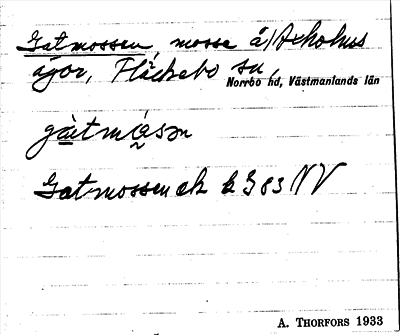 Gatmossen, mosse å Axholms
ägor, Fläckebo sn,
Norrbo hd, Västmanlands län
gàtmåsən
Gatmossen ek bl 83 NV
A. THORFORS 1933